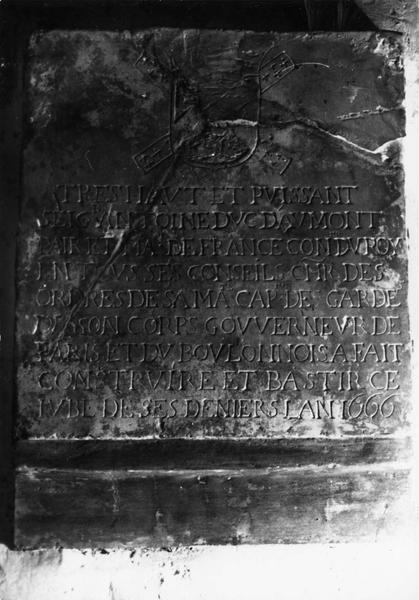 TRES HAUT ET PUISSANT
SEIG ANTOINE DUC DAUMONT
PAIR ET MA DE FRANCE CON DU ROY
EN TOUS SES CONSEILS CHR DES
ORDRES DE SA MA CAP DES GARDE
DE SON CORPS GOUVERNEUR DE
PARIS ET DU BOULONNOIS A FAIT
CONSTRUIRE ET BASTIR CE
IUBE DE SES DENIERS LAN 1666